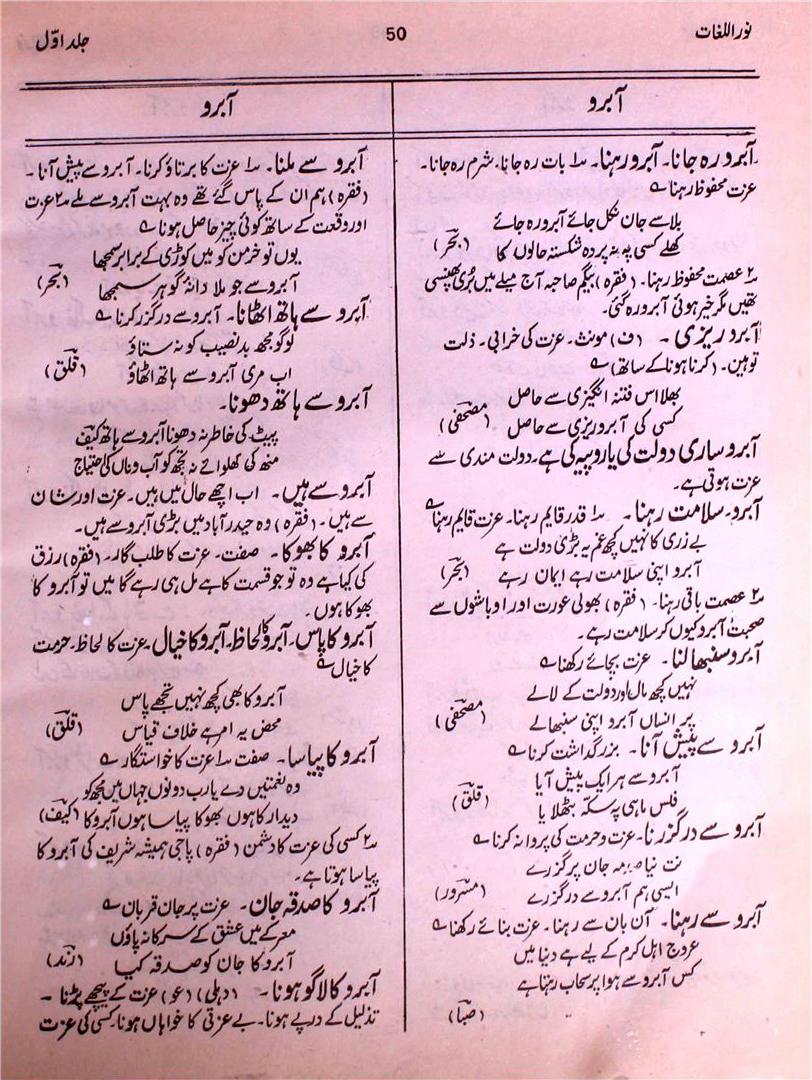 نور اللغات
50
جلد اوّل
آبرو
آبرو رہ جانا۔ آبرو رہنا۔ ؎۱ بات رہ جانا۔ شرم رہ جانا۔
عزت محفوظ رہنا ؎
بلا سے جان نکل جائے آبرو رہ جائے
کھلے کسی پہ نہ پردہ شکستہ حالوں کا (بحر)
؎۲ عصمت محفوظ رہنا۔ (فقرہ) بیگم صاحبہ آج میلے میں بُری پھنسی
تھیں مگر خیر ہوئی آبرو رہ گئی۔
آبرو ریزی ۔ (ف) مونث۔ عزت کی خرابی۔ ذلت
توہین۔ (کرنا ہونا کے ساتھ) ؎
بھلا اس فتنہ انگیزی سے حاصل
کسی کی آبرو ریزی سے حاصل (مصحفی)
آبرو ساری دولت کی یا روپیہ کی ہے۔ دولت مندی سے
عزت ہوتی ہے۔
آبرو۔ سلامت رہنا۔ ؎۱ قدر قایم رہنا۔ عزت قایم رہنا ؎
بے زری کا نہیں کچھ غم یہ بڑی دولت ہے
آبرو اپنی سلامت رہے ایمان رہے (بحر)
؎۲ عصمت باقی رہنا۔ (فقرہ) بھولی عورت اور اوباشوں سے
صحبت آبرو کیوں کر سلامت رہے۔
آبرو سنبھالنا۔ عزت بچائے رکھنا ؎
نہیں کچھ مال اور دولت کے لالے
ہر انساں آبرو اپنی سنبھالے (مصحفی)
آبرو سے پیش آنا۔ بزرگداشت کرنا ؎
آبرو سے ہر ایک پیش آیا
فلس ماہی پر سکّہ بٹھلایا (قلق)
آبرو سے درگزرنا۔ عزت و حرمت کی پروا نہ کرنا ؎
نت نیا صدمہ جان پر گزرے
ایسی ہم آبرو سے درگزرے (مسرور)
آبرو سے رہنا۔ آن بان سے رہنا۔ عزت بنائے رکھنا ؎
عروج اہل کرم کے لیے ہے دنیا میں
کس آبرو سے ہوا پر سحاب رہتا ہے
(صبا)
آبرو
آبرو سے ملنا۔ ؎۱ عزت کا برتاؤ کرنا۔ آبرو سے پیش آنا۔
(فقرہ) ہم ان کے پاس گئے تھے وہ بہت آبرو سے ملے ؎۲ عزت
اور وقعت کے ساتھ کوئی چیز حاصل ہونا ؎
یوں تو خرمن کو میں کوڑی کے برابر سمجھا
آبرو سے جو ملا دانۂ گوہر سمجھا (بحر)
آبرو سے ہاتھ اٹھانا۔ آبرو سے درگزر کرنا ؎
لوگو مجھ بد نصیب کو نہ ستاؤ
اب مری آبرو سے ہاتھ اٹھاؤ (قلق)
آبرو سے ہاتھ دھونا۔
پیٹ کی خاطر نہ دھونا آبرو سے ہاتھ کیف
منھ کی کھلوائے نہ تجھ کو آب و ناں کی احتیاج
آبرو سے ہیں۔ اب اچھے حال میں ہیں۔ عزت اور شان
سے ہیں۔ (فقرہ) وہ حیدرآباد میں بڑی آبرو سے ہیں۔
آبرو کا بھوکا۔ صفت۔ عزت کا طلب گار۔ (فقرہ) رزق
کی کیا ہے وہ تو جو قسمت کا ہے مل ہی رہے گا میں تو آبرو کا
بھوکا ہوں۔
آبرو کا پاس۔ آبرو کا لحاظ۔ آبرو کا خیال۔ عزت کا لحاظ۔ حرمت
کا خیال ؎
آبرو کا بھی کچھ نہیں تجھے پاس
محض یہ امر ہے خلاف قیاس (قلق)
آبرو کا پیاسا۔ صفت ؎۱ عزت کا خواستگار ؎
وہ نعمتیں دے یا رب دونوں جہاں میں مجھ کو
دیدار کا ہوں بھوکا پیاسا ہوں آبرو کا (کیف)
؎۲ کسی کی عزت کا دشمن (فقرہ) پاجی ہمیشہ شریف کی آبرو کا
پیاسا ہوتا ہے۔
آبرو کا صدقہ جان۔ عزت پر جان قربان ؎
معرکے میں عشق کے سرکا نہ پاؤں
آبرو کا جان کو صدقہ کیا (رند)
آبرو کا لاگو ہونا۔ (دہلی) (عو) عزت کے پیچھے پڑنا۔
تذلیل کے درپے ہونا۔ بے عزتی کا خواہاں ہونا۔ کسی کی عزت